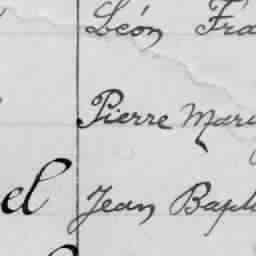 Léon Fra
Pierre Mary
el Jean Bapt